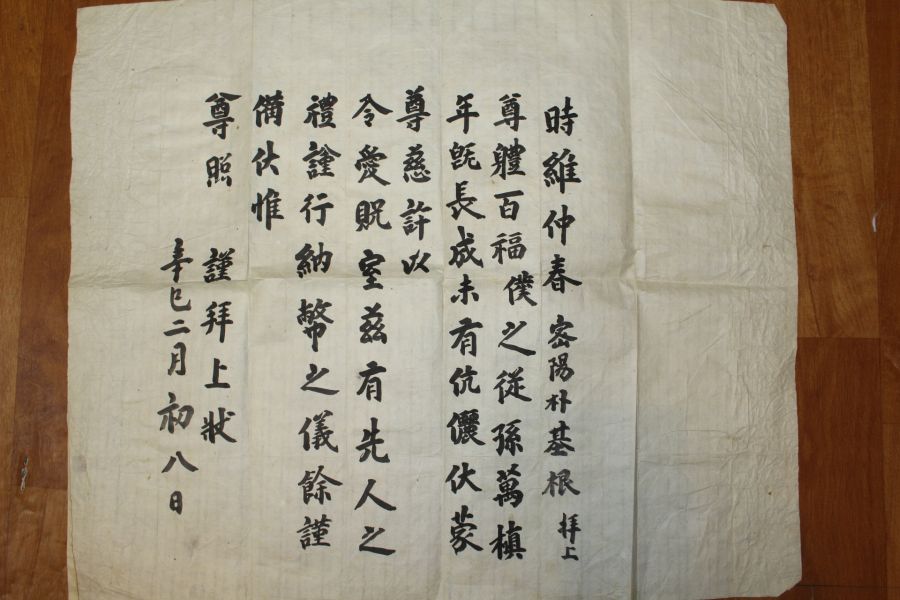 時維仲春 密陽朴基根 拜上
尊體百福僕之從孫萬槙
年旣長成未有伉儷伏蒙
尊慈許以
令愛貺室玆有先人之
禮謹行納幣之儀餘謹
備伏惟
尊照 謹拜上狀
辛巳二月初八日